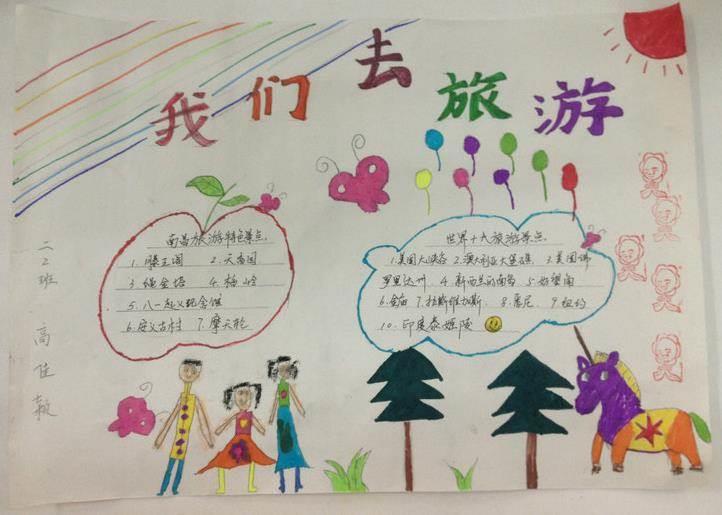 我们去旅游
南昌旅游特色景点
1.滕王阁 2.天香园
3.绳金塔 4.梅岭
5.八一起义纪念馆
6.安义古村 7.摩天轮
世界十大旅游景点
1.美国大峡谷 2.澳利亚大堡礁 3.美国佛
罗里达州 4.新西兰的南岛 5.好望角
6.金庙 7.拉斯维加斯 8.悉尼 9.纽约
10.印度泰姬陵
二2班 高佳